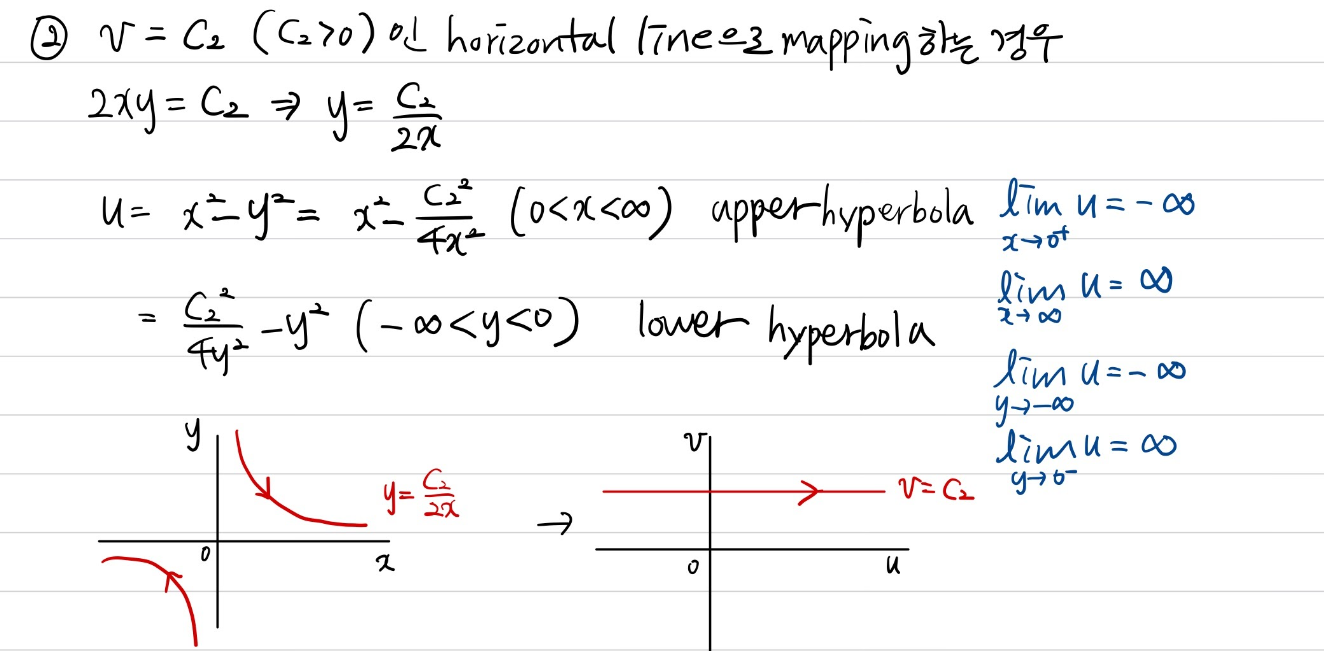 ② v = C₂ (C₂>0) 인 horizontal line으로 mapping하는 경우
2xy = C₂ ⇒ y = C₂/2x
u = x²-y² = x² - C₂²/4x² (0<x<∞) apper hyperbola
lim u = -∞
x→0⁺
lim u = ∞
x→∞
= C₂²/4y² - y² (-∞<y<0) lower hyperbola
lim u = -∞
y→-∞
lim u = ∞
y→0⁻
y
y = C₂/2x
0
x
→
v
v = C₂
0
u